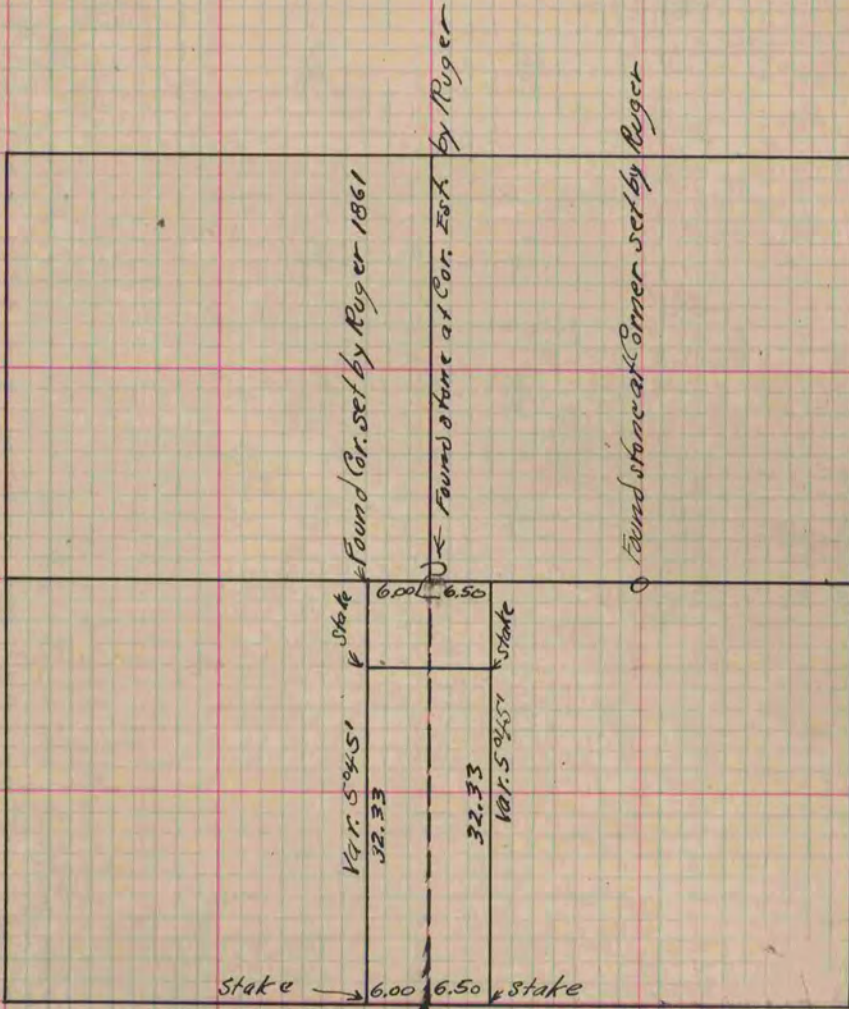 Found Cor. set by Ruger 1861
Found stone at Cor. Est. by Ruger
Found stone at Corner set by Ruger
6.00 6.50
Stake
Stake
Var. 5°45'
32.33
32.33
Var. 5°45'
Stake 6.00 6.50 Stake